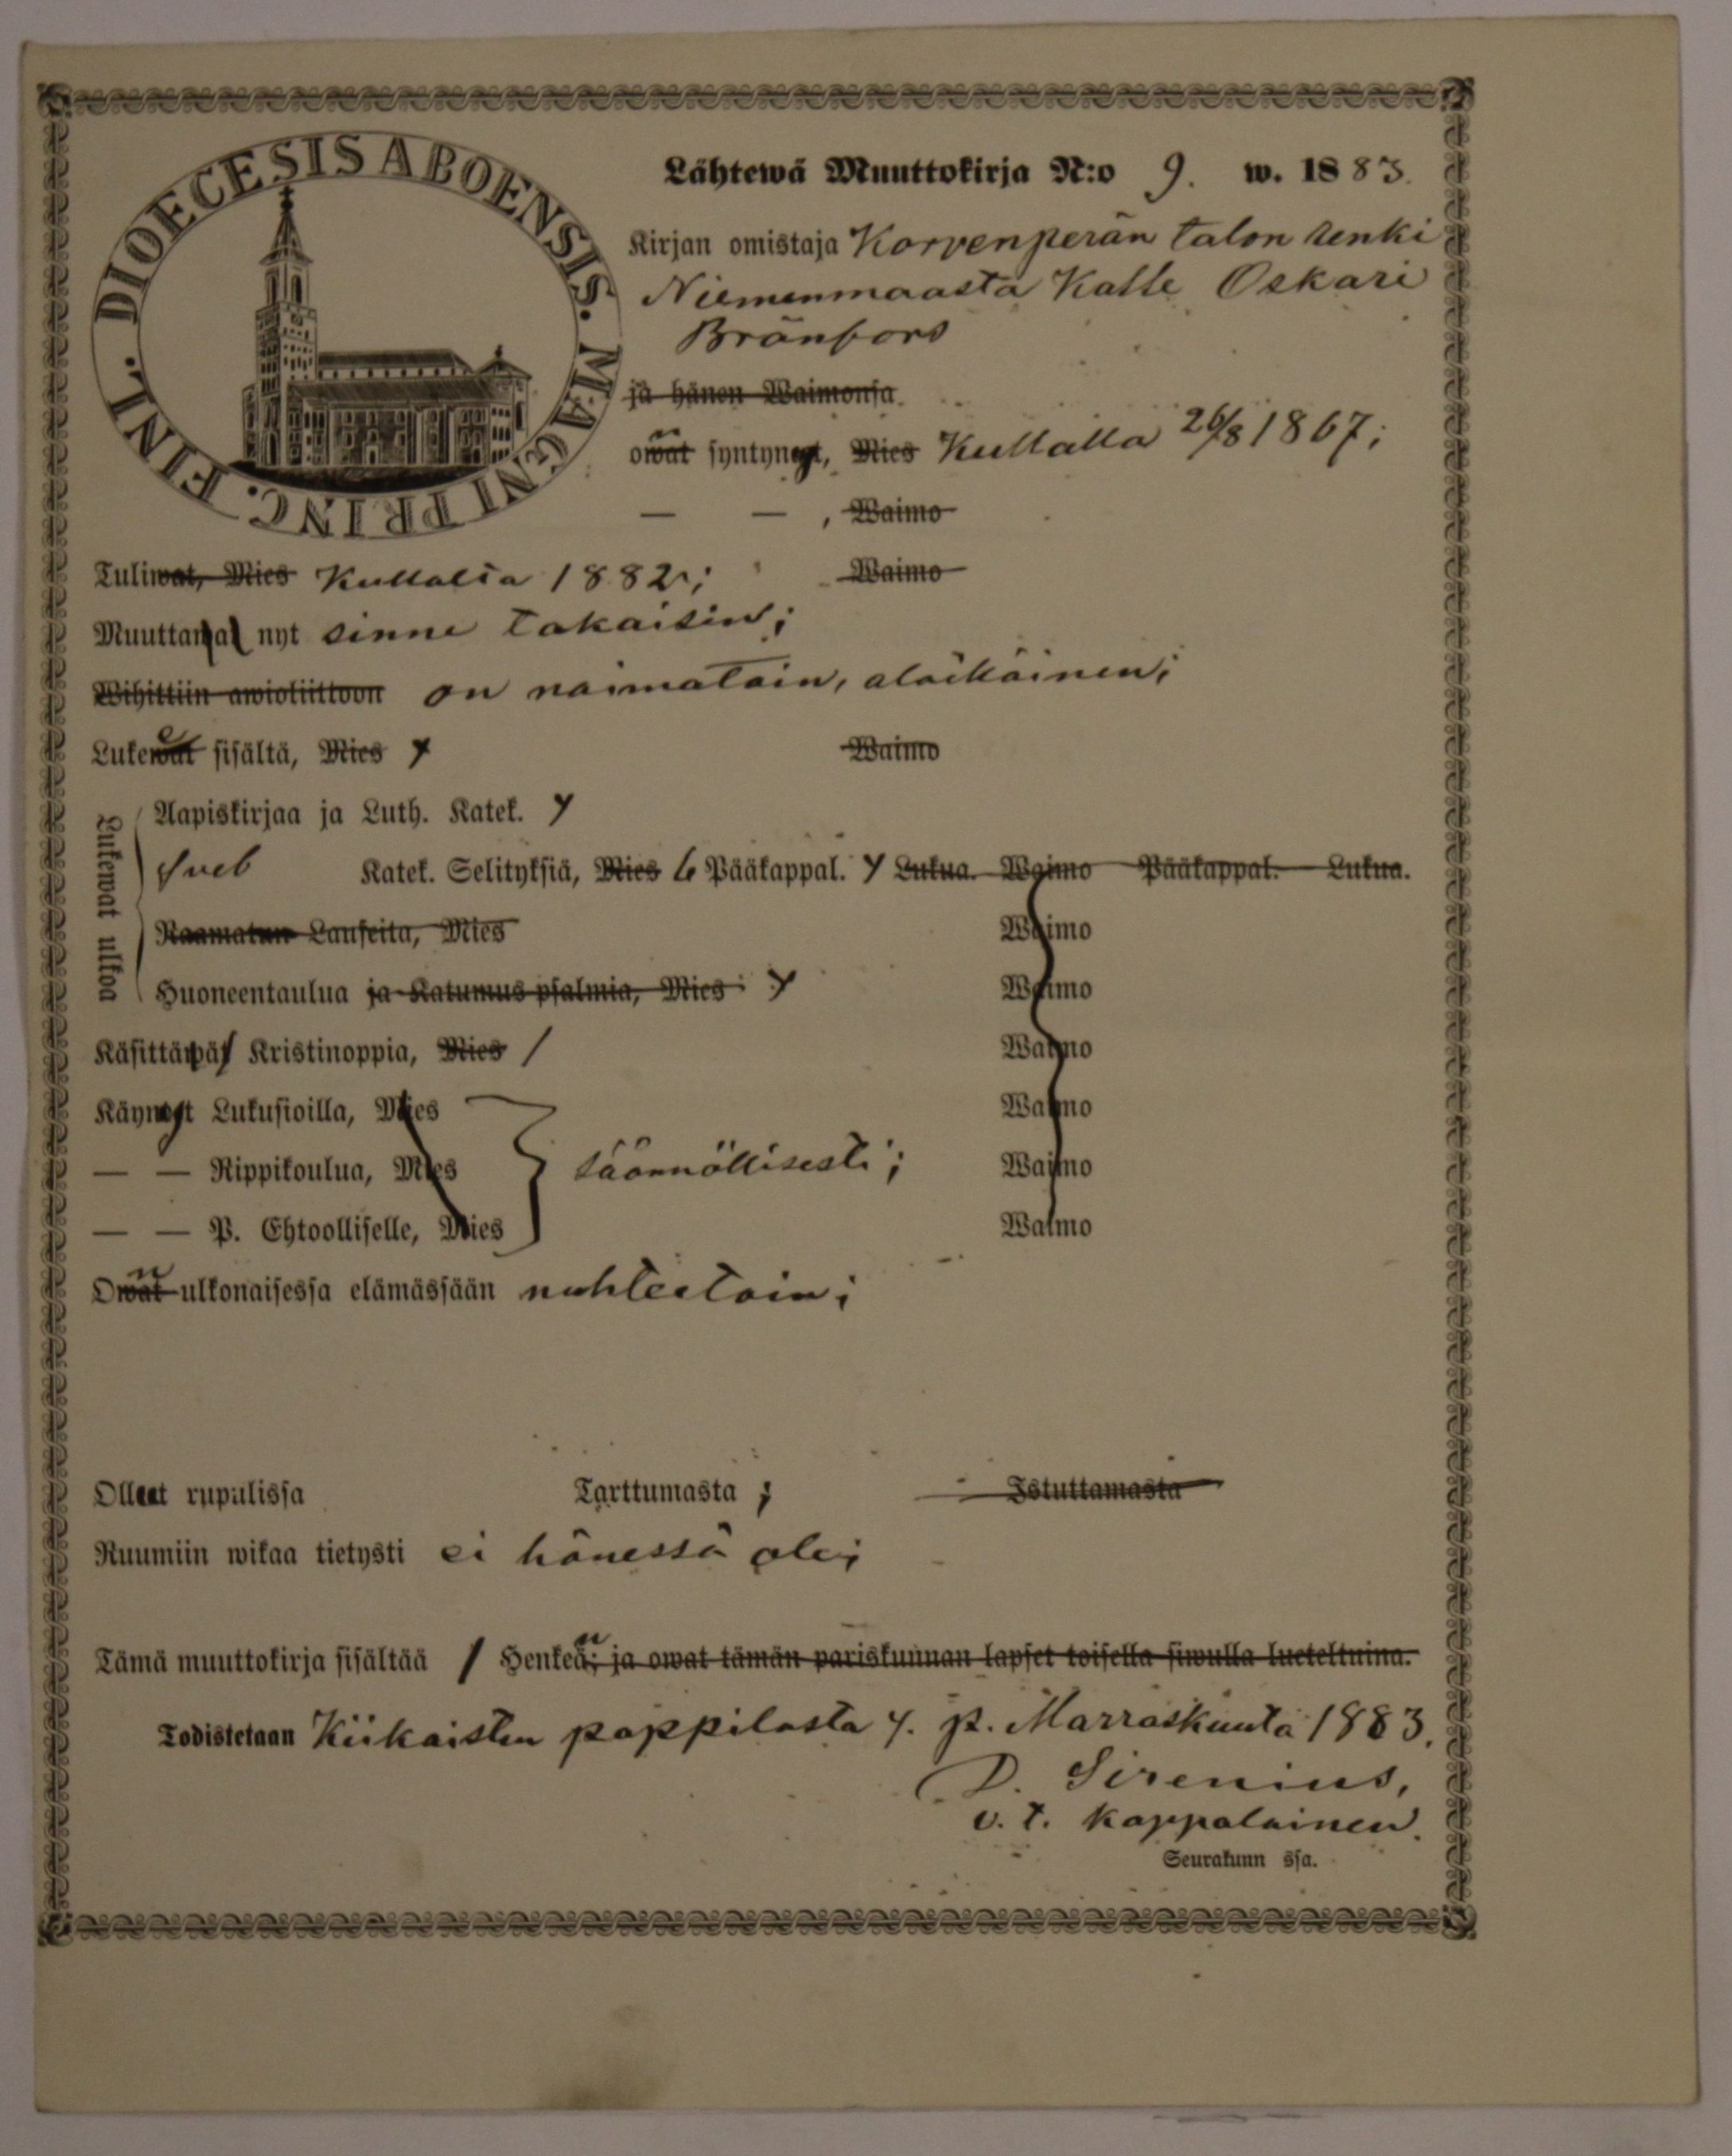 DIOECESIS ABOENSIS. MAGNI PRINC. FINL.
Lähtewä Muuttokirja N:o 9. w. 1883.
Kirjan omistaja Korvenperän talon renki
Niemenmaasta Kalle Oskari
Bränfors
ja hänen Waimonsa
owat syntynyt, Mies Kullalla 26/8 1867;
— — , Waimo
Tuliwat, Mies Kullalta 1882; Waimo
Muuttawat nyt sinne takaisin;
Wihittiin awioliittoon on naimatoin, aläikäinen;
Lukewat sisältä, Mies y Waimo
Lukewat ulkoa
Aapiskirjaa ja Luth. Katek. y
Sveb Katek. Selityksiä, Mies 6 Pääkappal. y Lukua. Waimo Pääkappal. Lukua.
Raamatun Lauseita, Mies Waimo
Huoneentaulua ja Katumus psalmia, Mies y Waimo
Käsittäwät Kristinoppia, Mies / Waimo
Käyneyt Lukusioilla, Mies Waimo
— — Rippikoulua, Mies säännöllisesti; Waimo
— — P. Ehtoolliselle, Mies Waimo
Owat n ulkonaisessa elämässään nuhteetoin;
Olleet rupulissa Tarttumasta ; Istuttamasta
Ruumiin wikaa tietysti ei hänessä ole;
Tämä muuttokirja sisältää 1 Henkeä; ja owat tämän pariskunnan lapset toisella siwulla lueteltuina.
Todistetaan Kiikaisten pappilasta 4. p. Marraskuuta 1883.
D. Sirenius,
v. t. kappalainen.
Seurakunn ssa.